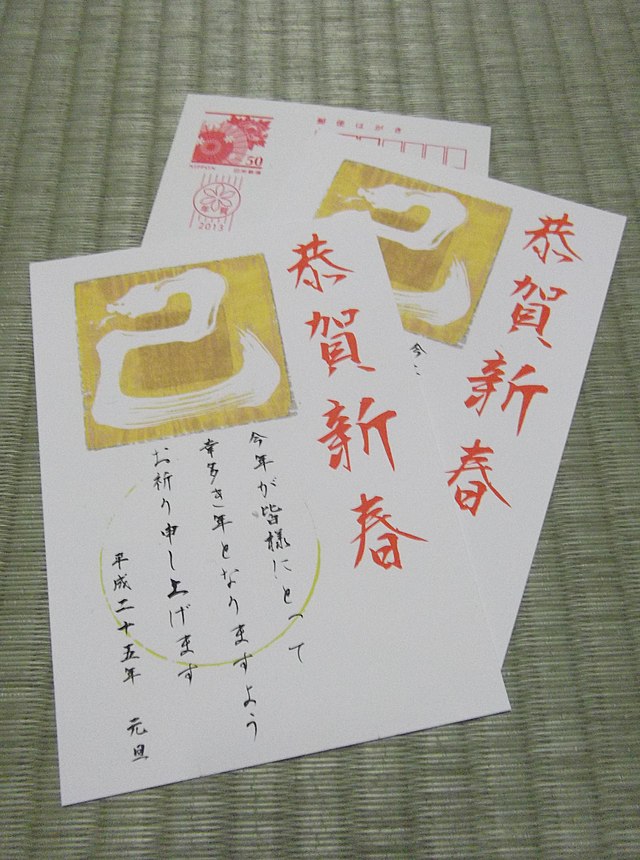 郵便はがき
50
NIPPON
日本郵便
年賀
2013
恭賀新春
今
恭賀新春
今年が皆様にとって
幸多き年となりますよう
お祈り申し上げます
平成二十五年 元旦
巳